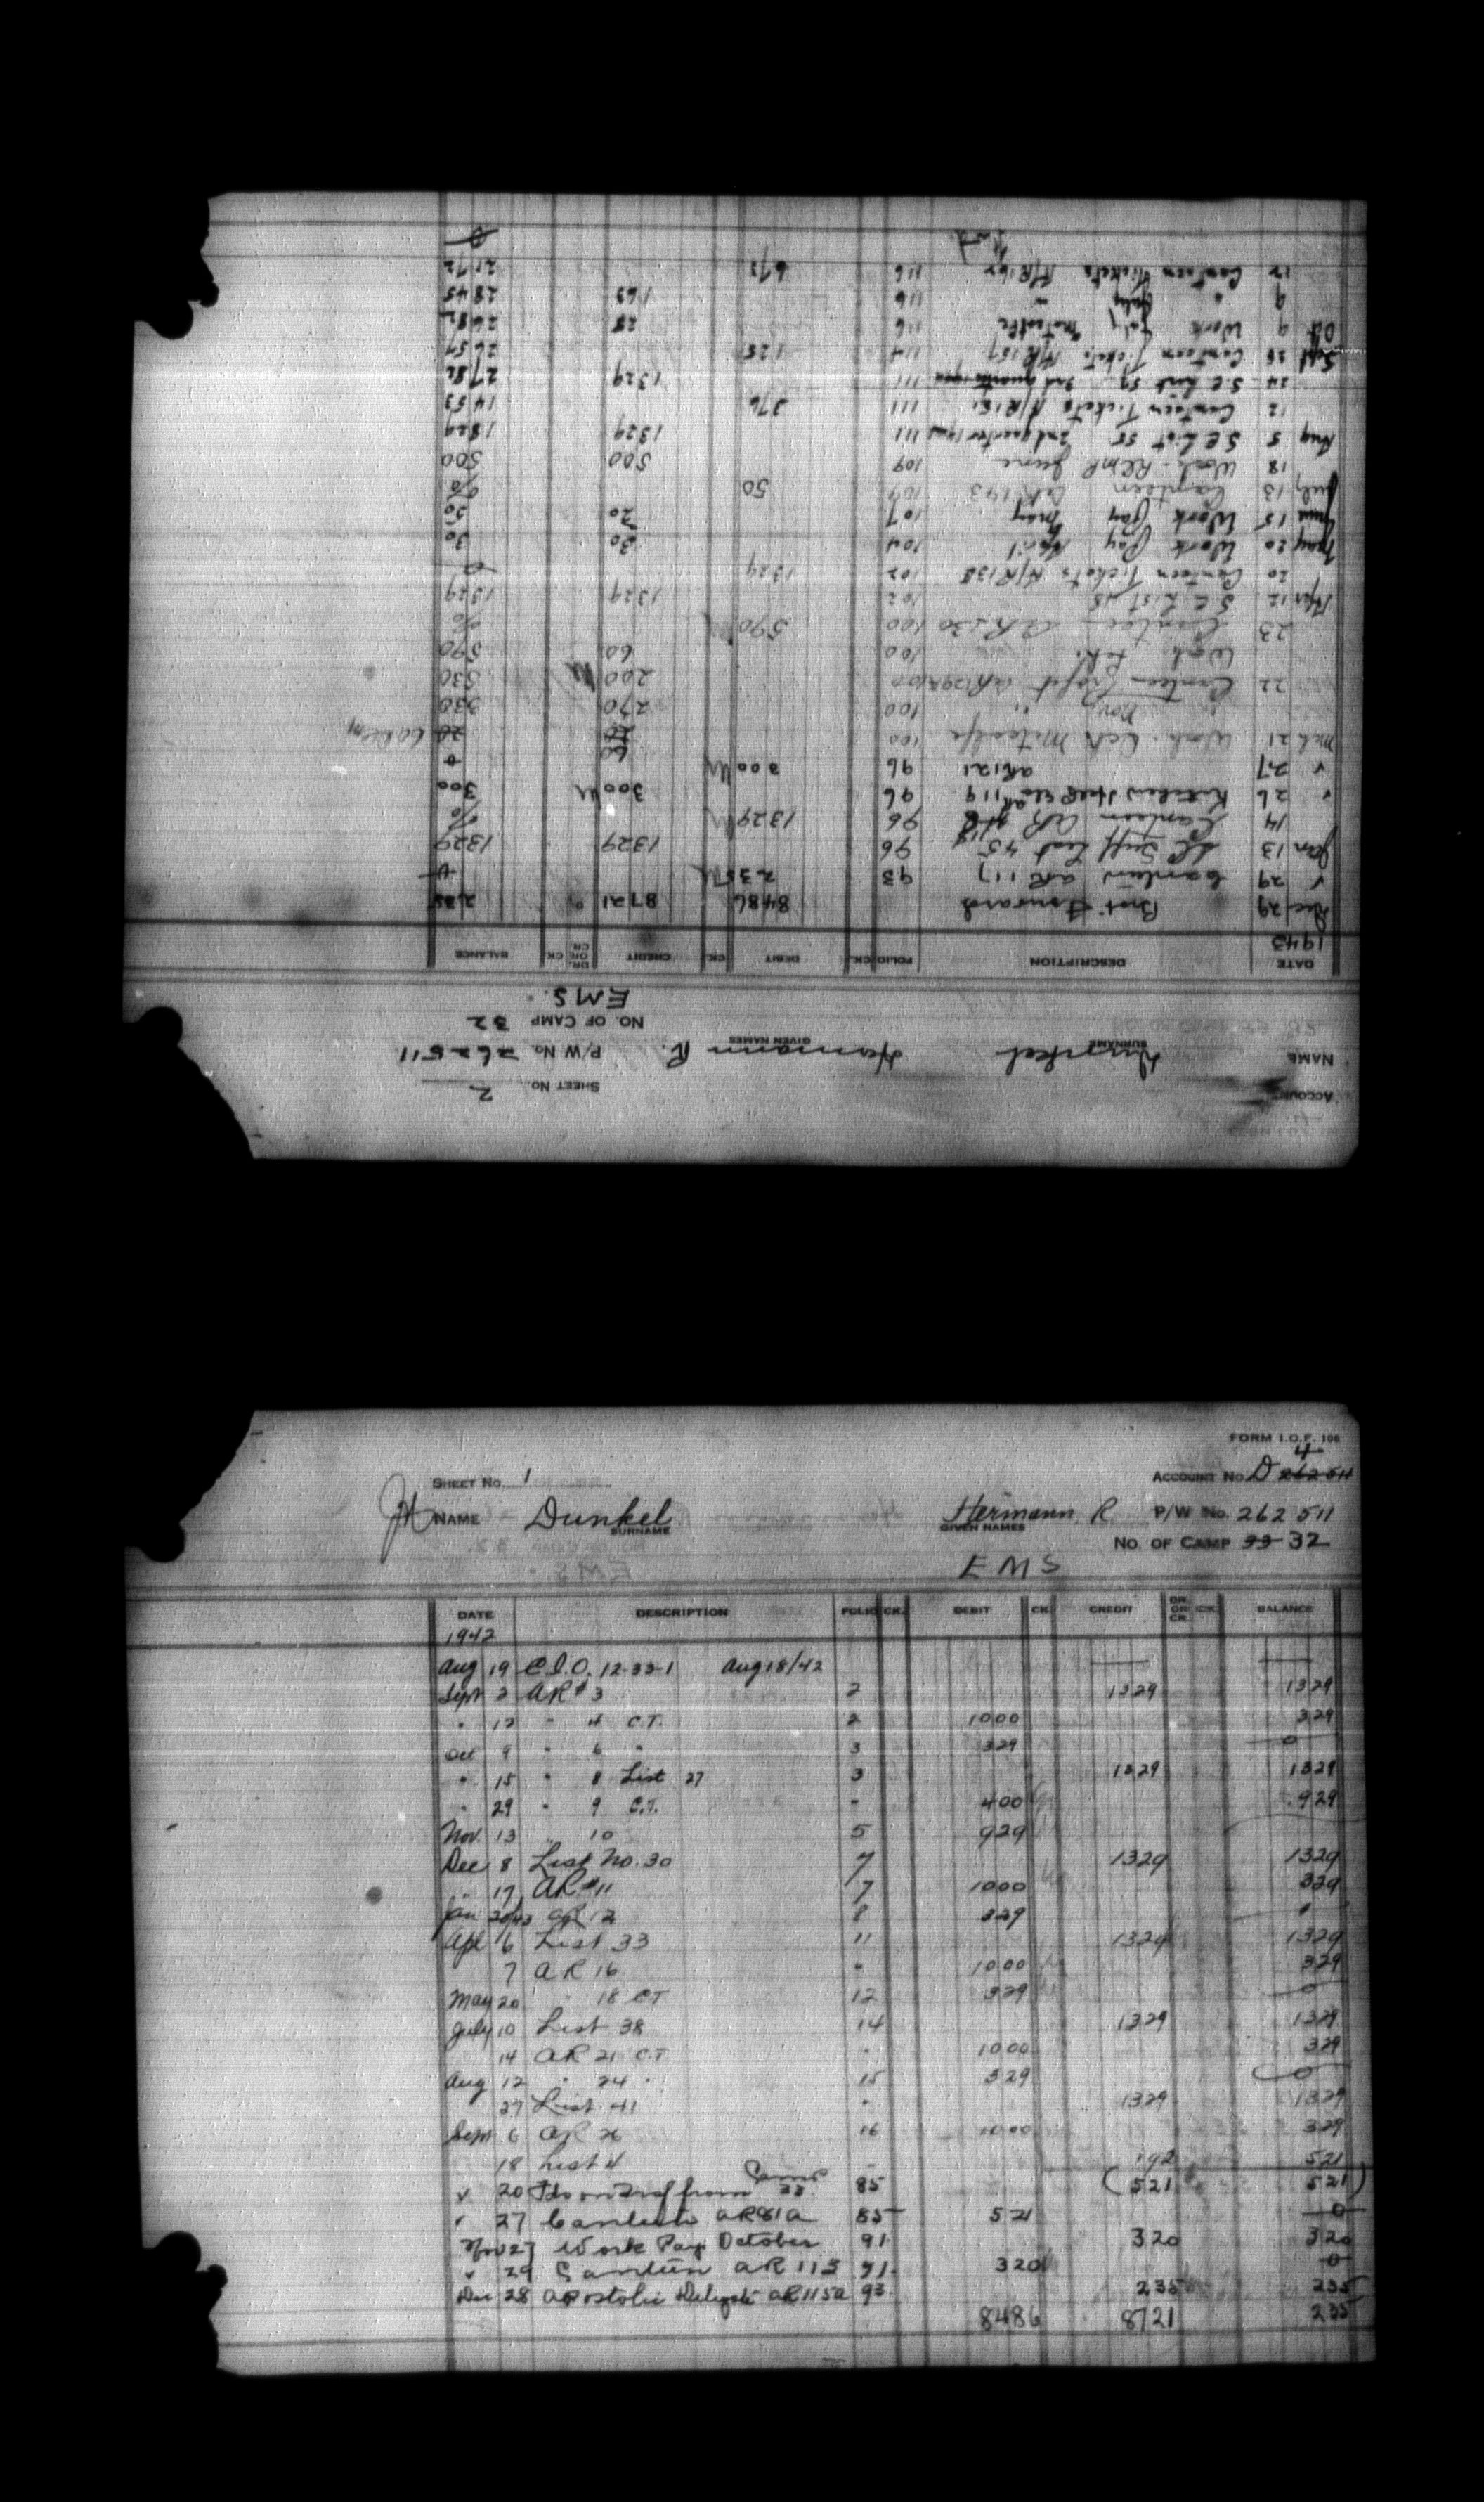 SHEET NO. 2
ACCOUNT
NAME Dunkel Hermann R. P/W No. 262511
SURNAME GIVEN NAMES
NO. OF CAMP 32
EMS.
DATE DESCRIPTION FOLIO CK. DEBIT CK. CREDIT DR. OR CR. CK. BALANCE
1943
Dec 29 Brot Forward 8486 8721 235
" 29 Canteen AR 117 93 235
Jan 13 List 45 96 1329 1329
14 Canteen AR 118 96 1329 %
" 26 AR 119 96 300 300
" 27 AR 121 96 300 0
Mch 21 Work. Oct Metcalfe 100 60
" Nov. " 100 270 330
22 Canteen Profit AR 129 100 200 530
Work Feb. 100 60 590
23 Canteen AR 130 100 590 %
Apr 12 S.E. List 48 102 1329 1329
20 Canteen Tickets A/R 138 102 1329 0
May 20 Work Pay April 104 30 30
June 15 Work Pay May 107 20 50
July 13 Canteen AR 143 109 50 %
18 Work - June 109 500 500
Aug 5 S.E. List 55 2nd quarter 111 1329 1829
12 Canteen Tickets A/R 151 111 376 1453
24 S.E. List 59 3rd quarter 111 1329 2782
Sept 26 Canteen Tickets A/R 157 114 125 2657
Oct 9 Work July Metcalfe 116 25 2682
9 " Aug " 116 163 2845
12 Canteen Tickets A/R 162 116 673 2172
FORM I.O.F. 106
SHEET NO. 1 ACCOUNT NO. D 4 262511
NAME Dunkel Hermann R P/W No. 262511
SURNAME GIVEN NAMES
NO. OF CAMP 33 32
EMS
DATE DESCRIPTION FOLIO CK. DEBIT CK. CREDIT DR. OR CR. CK. BALANCE
1942
Aug 19 C.I.O. 12-33-1 Aug 18/42
Sept 2 AR # 3 2 1329 1329
" 12 " 4 C.T. 2 1000 329
Oct 9 " 6 " 3 329 0
" 15 " 8 List 27 3 1329 1329
" 29 " 9 C.T. " 400 929
Nov. 13 " 10 5 929
Dec 8 List No. 30 7 1329 1329
" 17 AR #11 7 1000 329
Jan 20/43 AR 12 8 329
Apl 6 List 33 11 1329 1329
7 AR 16 " 1000 329
May 20 " 18 CT 12 329 0
July 10 List 38 14 1329 1329
14 AR 21 C.T " 1000 329
Aug 12 " 24 " 15 329 0
27 List 41 " 1329 1329
Sept 6 AR 26 16 1000 329
18 List 4 " 192 521
" 20 from Camp 33 85 (521 521)
" 27 Canteen AR 81A 85 521 0
Nov 27 Work Pay October 91 320 320
" 29 Canteen AR 113 91 320 0
Dec 28 Apostolic Delegate AR 115A 93 235 235
8486 8721 235